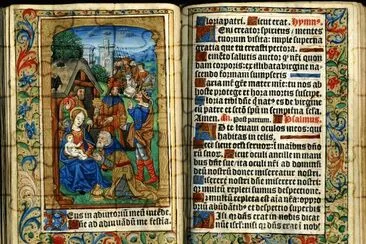 Deus in adiutoriũ meũ intẽde.
Dñe ad adiuvandũ me festia.
Gloria patri. Sicut erat. Hymnꝰ
Veni creator spiritus / mentes
tuorum visita: imple superna
gratia que tu creasti pectora.
Memento salutis auctor ꝙ nr̃i quon
dam corporis: ex illibata virgine na
scendo formam sumpseris
Maria mr̃ gr̃e mater mĩe tu nos ab
hoste protege et hora mortis suscipe.
Gloria tibi dñe q̇ natꝰ es de virgine
cũ patre et sctõ spũ in sempiterna
Amen. Añ. post partum. Psalmus.
Ad te levavi oculos meos: qui
habitas in celis.
Ecce sicut oculi servorũ: ĩ manibus dñõ
rũ suorũ. Sicut oculi ancille in mani
bus dñe sue: ita oculi nr̃i ad dominũ
deũ nostrũ donec misereatur nostri.
Miserere nostri dñe miserere nostri:
multũ repleti sumus despectione.
multũ repleta est aĩa nr̃a: oppro
briũ abũdãtibꝰ et despectio superbis
Nisi ꝙ dñs erat in nobis dicat
nũc isrl̃: nisi ꝙ dñs erat in nobis